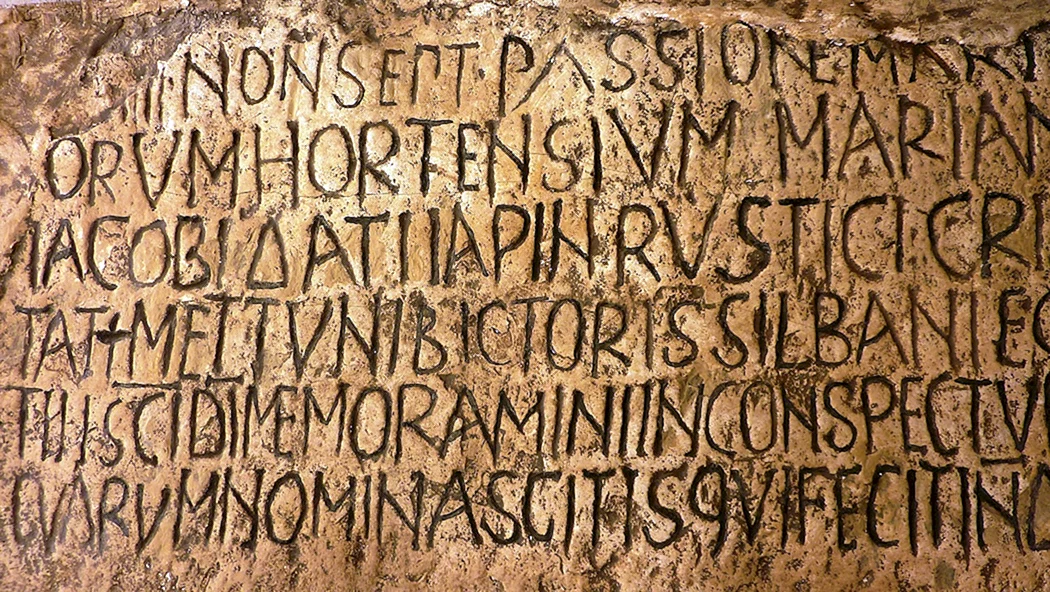 IIII NON SEPT · PASSIONE MARTI
ORVM HORTENSIVM MARIAN
IACOBI DATI IAPIN RVSTICI CRI
TAT METTVNI BICTORIS SILBANI EG
SCI DI MEMORAMINI IN CONSPECTV
QVARVM NOMINA SCITIS QVI FECIT IND